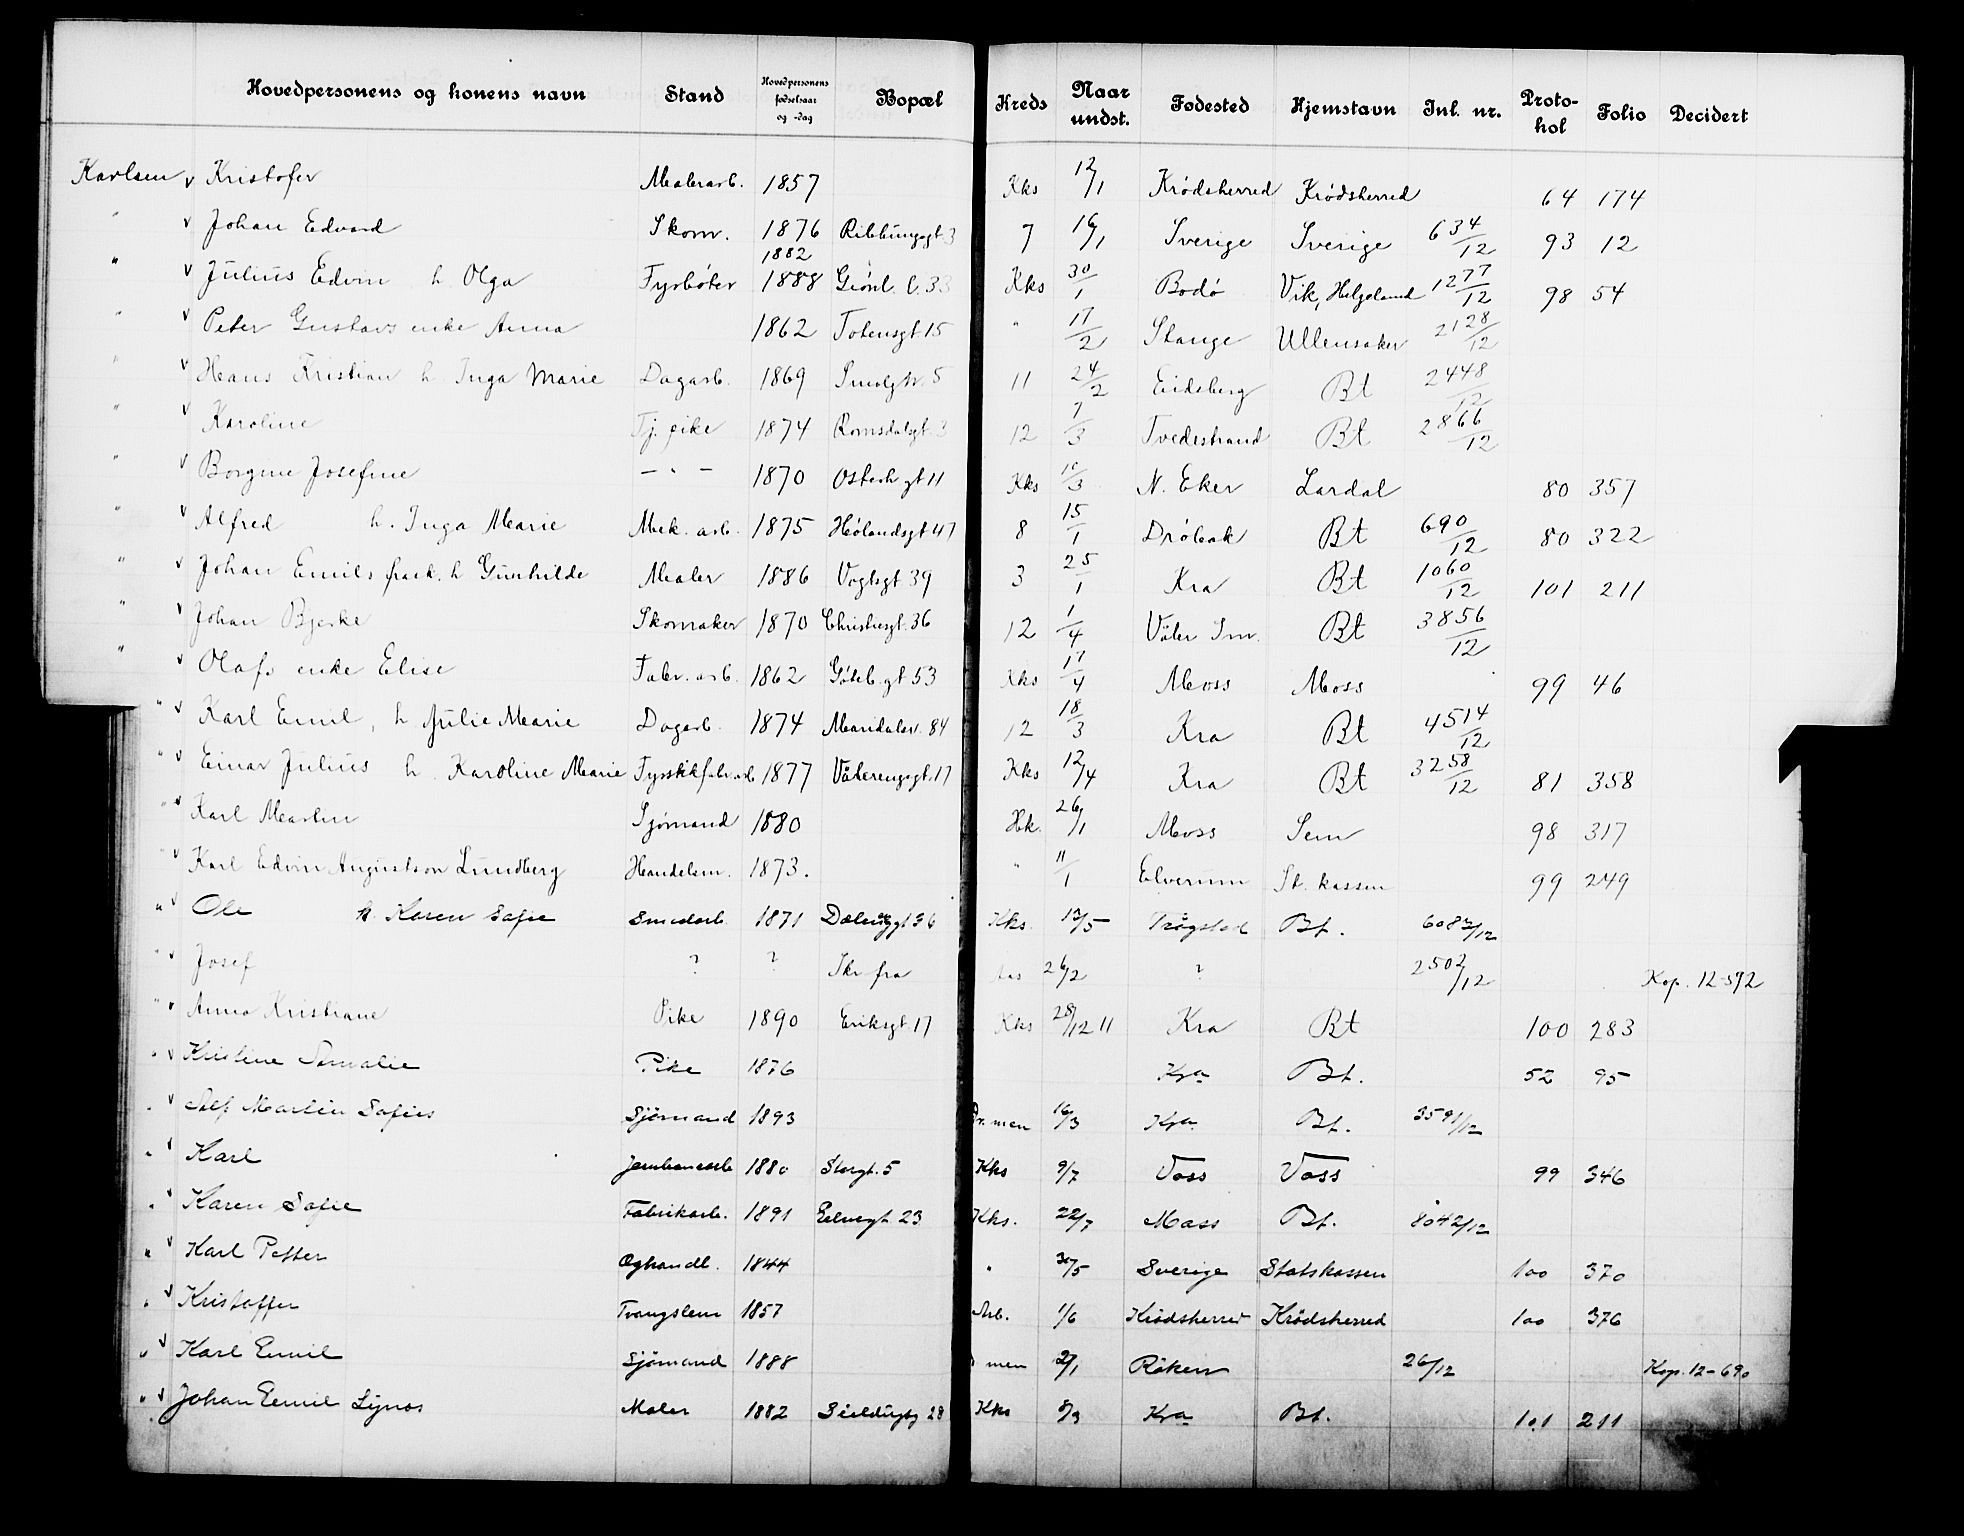 Hovedpersonens og konens navn Stand Hovedpersonens fødselsaar og -dag Bopæl Kreds Naar undst. Fødested Hjemstavn Inl. nr. Protokol Folio Decidert
Karlsen v Kristofer Malerarb. 1857 Kks 12/1 Krødsherred Krødsherred 64 174
" v Johan Edvard Skom. 1876 Ribbungsgt 3 7 16/1 Sverige Sverige 634/12 93 12
1882
" v Julius Edvin h. Olga Fyrbøter 1888 Grønl. l. 33 Kks 30/1 Bodø Vik, Helgeland 1277/12 98 54
" v Peter Gustavs enke Anna 1862 Totensgt 15 " 17/2 Stange Ullensaker 2128/12
" v Hans Kristian h Inga Marie Dagarb. 1869 5 11 24/2 Eidsberg Bt 2448/12
" v Karoline Tj. pike 1874 Romsdalsgt. 3 12 7/3 Tvedestrand Bt 2866/12
" v Borgine Josefine — " — 1870 Osterh gt 11 Kks 10/3 N. Eker Lardal 80 357
" v Alfred h. Inga Marie Mek. arb. 1875 Hølandsgt 47 8 15/1 Drøbak Bt 690/12 80 322
" v Johan Emils frask. h Gunhilde Maler 1886 Vogtsgt 39 3 25/1 Kra Bt 1060/12 101 211
" v Johan Bjerke Skomaker 1870 Christiesgt. 36 12 1/4 Våler Sm. Bt 3856/12
" v Olafs enke Elise Fabr. arb. 1862 Gøteb. gt 53 Kks 17/4 Moss Moss 99 46
" v Karl Emil, h Julie Marie Dagarb. 1874 Maridalsv. 84 12 18/3 Kra Bt 4514/12
" v Einar Julius h. Karoline Marie Fyrstikfabr. arb 1877 Vålerengsgt. 17 Kks 12/4 Kra Bt 3258/12 81 358
" v Karl Martin Sjømand 1880 Hk. 26/1 Moss Sem 98 317
" v Karl Edvin Augustson Lundberg Handelsm. 1873. " 11/1 Elverum St. kassen 99 249
" v Ole h. Karen Sofie Smedarb. 1871 Dælenggt 36 Kks. 13/5 Trøgstad Bt. 6082/12
" v Josef ? ? Skr fra 26/2 ? 2502/12 Kop. 12-592
" v Anna Kristiane Pike 1890 Eriksgt. 17 Kks 28/12 11 Kra Bt 100 283
" v Kristine Amalie Pike 1876 Kra Bt. 52 95
" v Alf Martin Sofies Sjömand 1893 Dr.men 16/3 Kra. Bt. 3591/12
" v Karl Jernbanearb 1880 Storgt. 5 Kks 9/7 Voss Voss 99 346
" v Karen Sofie Fabrikarb. 1891 Eelvegt. 23 Kks. 22/7 Moss Bt. 8042/12
" v Karl Petter Øghandl. 1844 " 30/5 Sverige Statskassen 100 370
" v Kristoffer Tvangslem 1857 Arb. 1/6 Krödsherred Krödsherred 100 376
" v Karl Emil Sjömand 1888 men 2/1 Röken 26/12 Kop. 12-690
" v Johan Emil Maler 1882 28 Kks 5/3 Kra Bt. 101 211